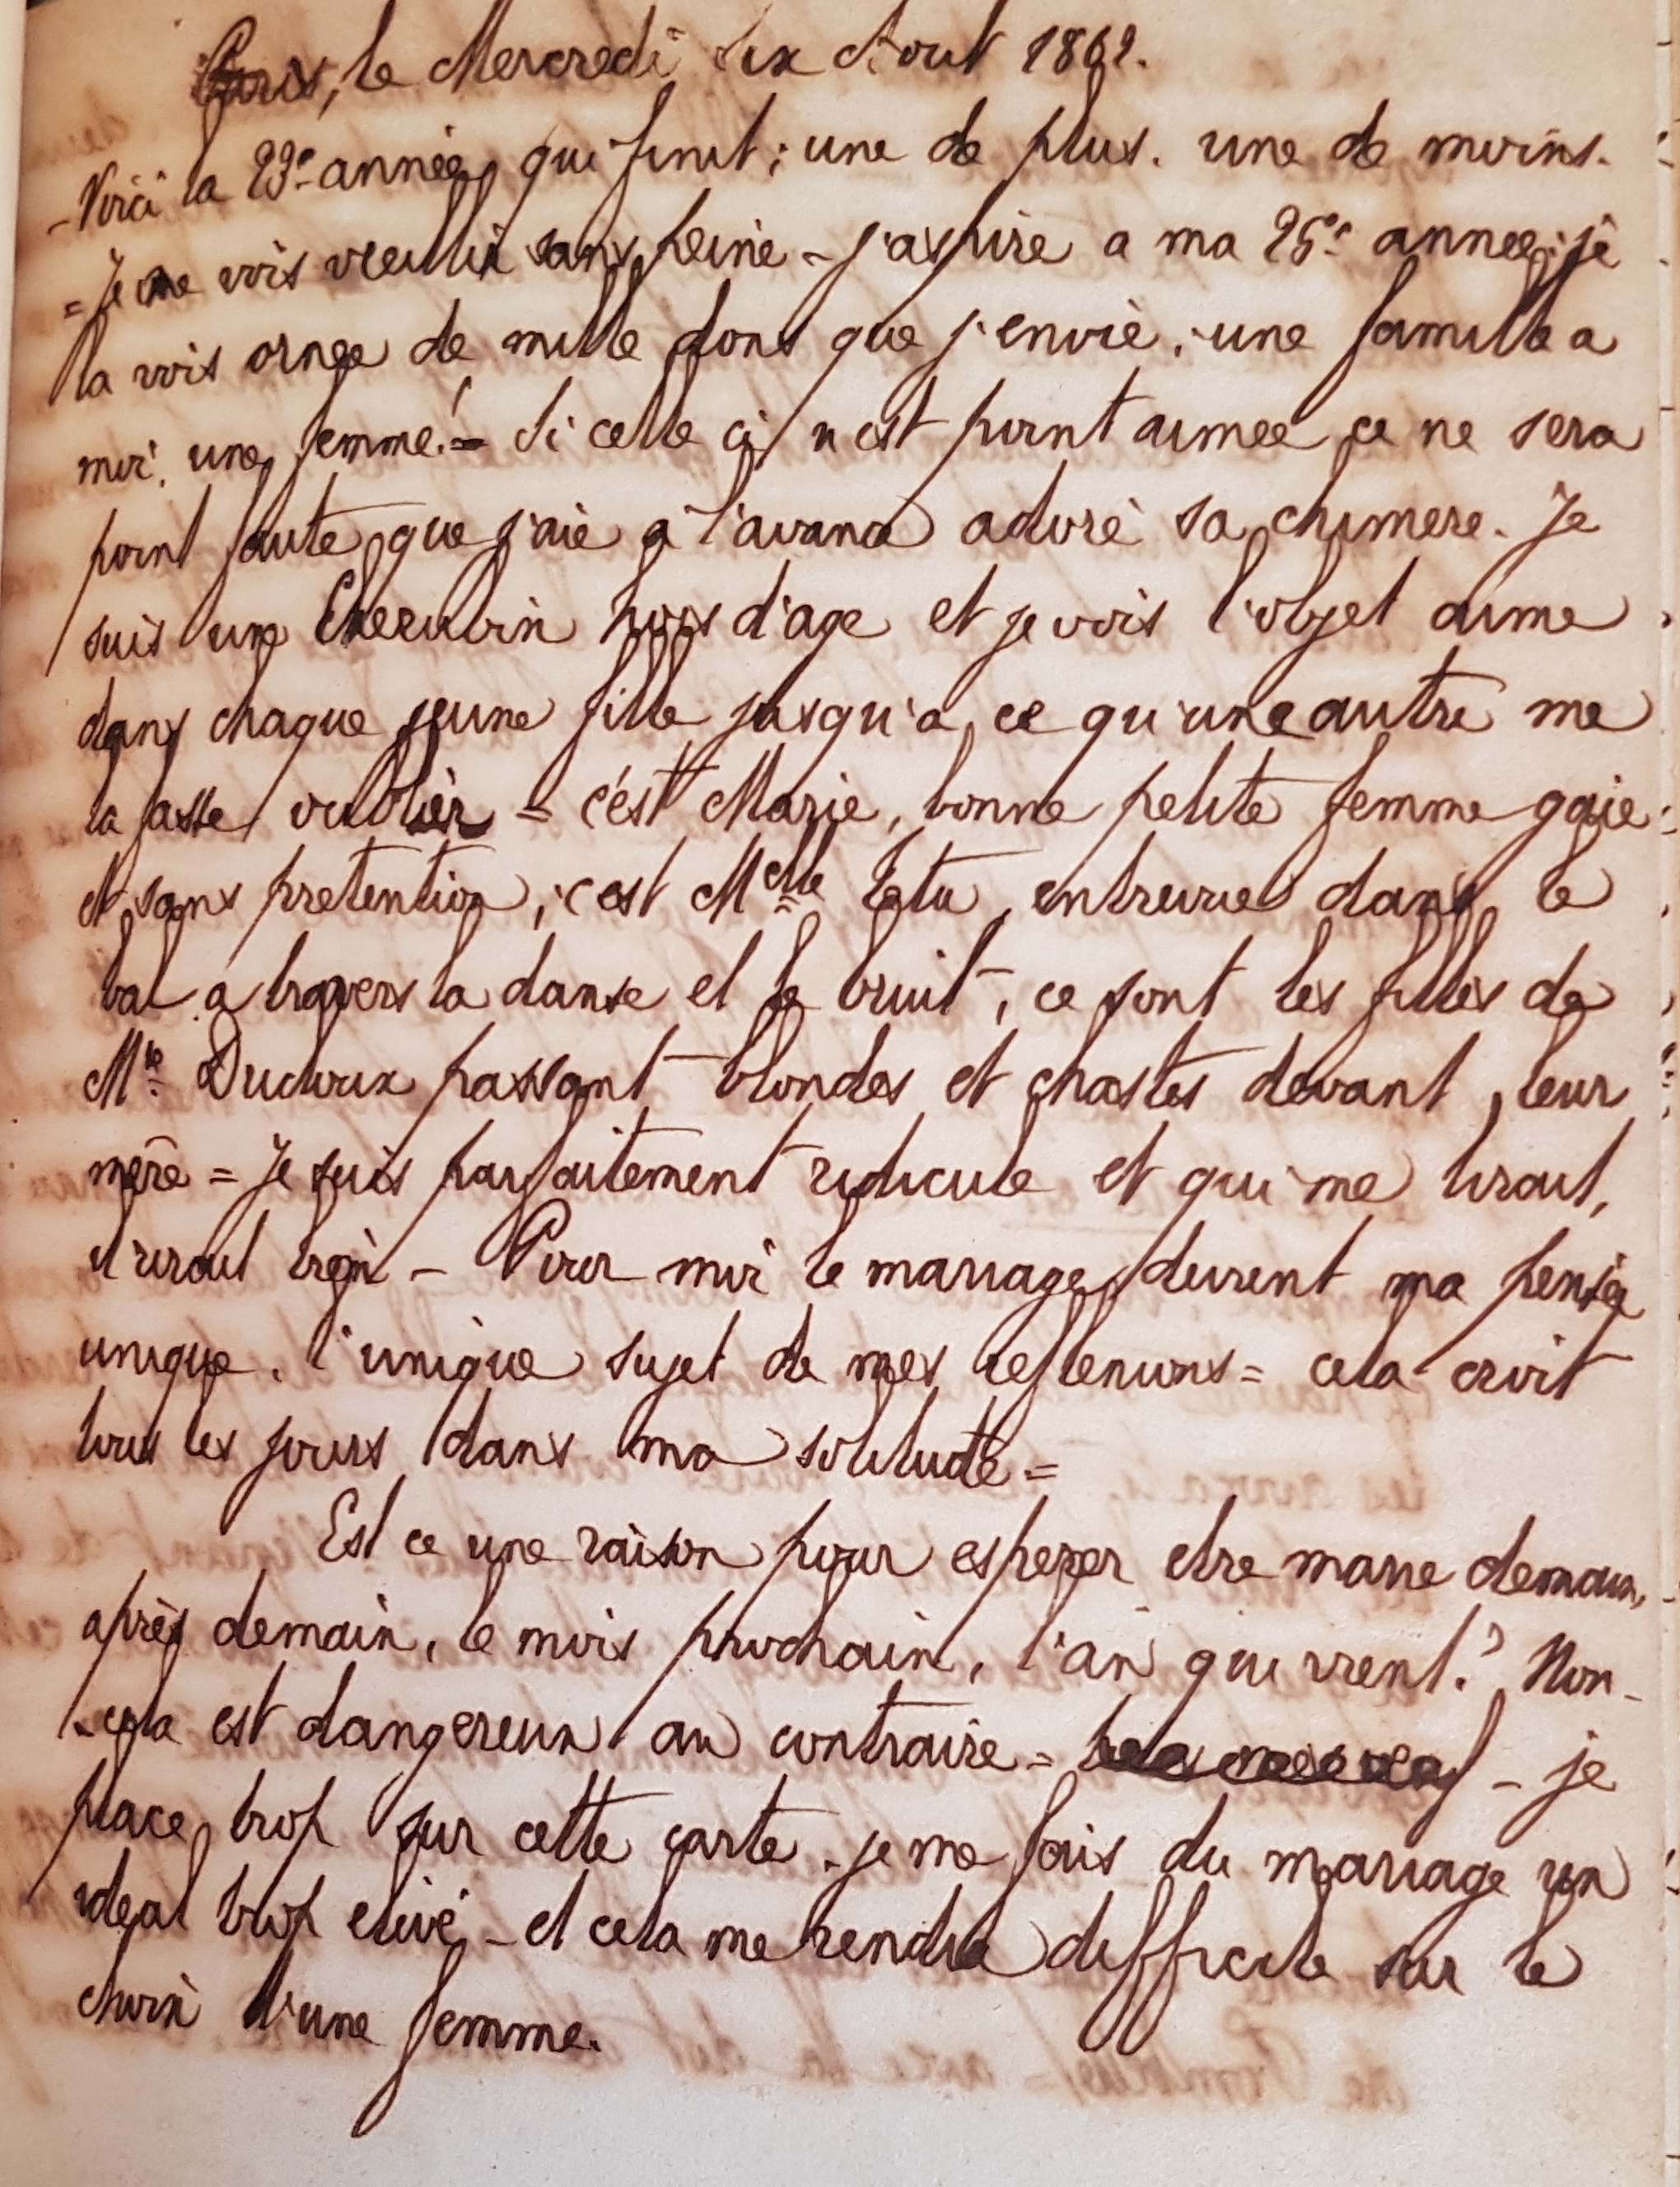 Paris, le Mercredi six Aout 1862.
- Voici la 23e année qui finit ; une de plus. une de moins.
= Je me vois vieillir sans peine - j'aspire a ma 25e année ; je
la vois ornée de mille dons que j'envie ; une famille a
moi, une femme ! = Si celle ci n'est point aimée ce ne sera
point faute que j'aie à l'avance adoré sa chimere. Je
suis un Cherubin hors d'age et je vois l'objet aimé
dans chaque jeune fille jusqu'a ce qu'une autre me
la fasse oublier = c'est Marie, bonne petite femme gaie
et sans pretention ; c'est Melle entrevue dans le
bal a travers la danse et le bruit ; ce sont les filles de
Me passant blondes et chastes devant leur
mère = Je suis parfaitement ridicule et qui me liroit,
riroit bien - Pour moi le mariage devient ma pensée
unique. l'unique sujet de mes reflexions = cela croit
tous les jours dans ma solitude =
Est ce une raison pour esperer etre marié demain,
après demain, le mois prochain, l'an qui vient ? Non -
- cela est dangereux au contraire = - je
place trop sur cette carte - je me fais du mariage un
ideal trop elevé - et cela me rendra difficile sur le
choix d'une femme.